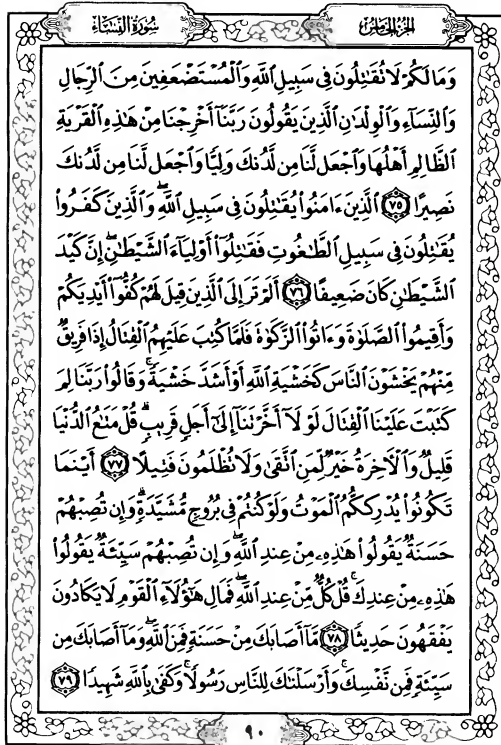 سُورَةُ النِّسَاءِ
الجُزءُ الخَامِسُ
وَمَا لَكُمْ لَا تُقَٰتِلُونَ فِى سَبِيلِ ٱللَّهِ وَٱلْمُسْتَضْعَفِينَ مِنَ ٱلرِّجَالِ
وَٱلنِّسَآءِ وَٱلْوِلْدَٰنِ ٱلَّذِينَ يَقُولُونَ رَبَّنَآ أَخْرِجْنَا مِنْ هَٰذِهِ ٱلْقَرْيَةِ
ٱلظَّالِمِ أَهْلُهَا وَٱجْعَل لَّنَا مِن لَّدُنكَ وَلِيًّا وَٱجْعَل لَّنَا مِن لَّدُنكَ
نَصِيرًا ٧٥ ٱلَّذِينَ ءَامَنُوا۟ يُقَٰتِلُونَ فِى سَبِيلِ ٱللَّهِ ۖ وَٱلَّذِينَ كَفَرُوا۟
يُقَٰتِلُونَ فِى سَبِيلِ ٱلطَّٰغُوتِ فَقَٰتِلُوٓا۟ أَوْلِيَآءَ ٱلشَّيْطَٰنِ ۖ إِنَّ كَيْدَ
ٱلشَّيْطَٰنِ كَانَ ضَعِيفًا ٧٦ أَلَمْ تَرَ إِلَى ٱلَّذِينَ قِيلَ لَهُمْ كُفُّوٓا۟ أَيْدِيَكُمْ
وَأَقِيمُوا۟ ٱلصَّلَوٰةَ وَءَاتُوا۟ ٱلزَّكَوٰةَ فَلَمَّا كُتِبَ عَلَيْهِمُ ٱلْقِتَالُ إِذَا فَرِيقٌ
مِّنْهُمْ يَخْشَوْنَ ٱلنَّاسَ كَخَشْيَةِ ٱللَّهِ أَوْ أَشَدَّ خَشْيَةً ۚ وَقَالُوا۟ رَبَّنَا لِمَ
كَتَبْتَ عَلَيْنَا ٱلْقِتَالَ لَوْلَآ أَخَّرْتَنَآ إِلَىٰٓ أَجَلٍ قَرِيبٍ ۗ قُلْ مَتَٰعُ ٱلدُّنْيَا
قَلِيلٌ وَٱلْءَاخِرَةُ خَيْرٌ لِّمَنِ ٱتَّقَىٰ وَلَا تُظْلَمُونَ فَتِيلًا ٧٧ أَيْنَمَا
تَكُونُوا۟ يُدْرِككُّمُ ٱلْمَوْتُ وَلَوْ كُنتُمْ فِى بُرُوجٍ مُّشَيَّدَةٍ ۗ وَإِن تُصِبْهُمْ
حَسَنَةٌ يَقُولُوا۟ هَٰذِهِۦ مِنْ عِندِ ٱللَّهِ ۖ وَإِن تُصِبْهُمْ سَيِّئَةٌ يَقُولُوا۟
هَٰذِهِۦ مِنْ عِندِكَ ۚ قُلْ كُلٌّ مِّنْ عِندِ ٱللَّهِ ۖ فَمَالِ هَٰٓؤُلَآءِ ٱلْقَوْمِ لَا يَكَادُونَ
يَفْقَهُونَ حَدِيثًا ٧٨ مَّآ أَصَابَكَ مِنْ حَسَنَةٍ فَمِنَ ٱللَّهِ ۖ وَمَآ أَصَابَكَ مِن
سَيِّئَةٍ فَمِن نَّفْسِكَ ۚ وَأَرْسَلْنَٰكَ لِلنَّاسِ رَسُولًا ۚ وَكَفَىٰ بِٱللَّهِ شَهِيدًا ٧٩
٩٠